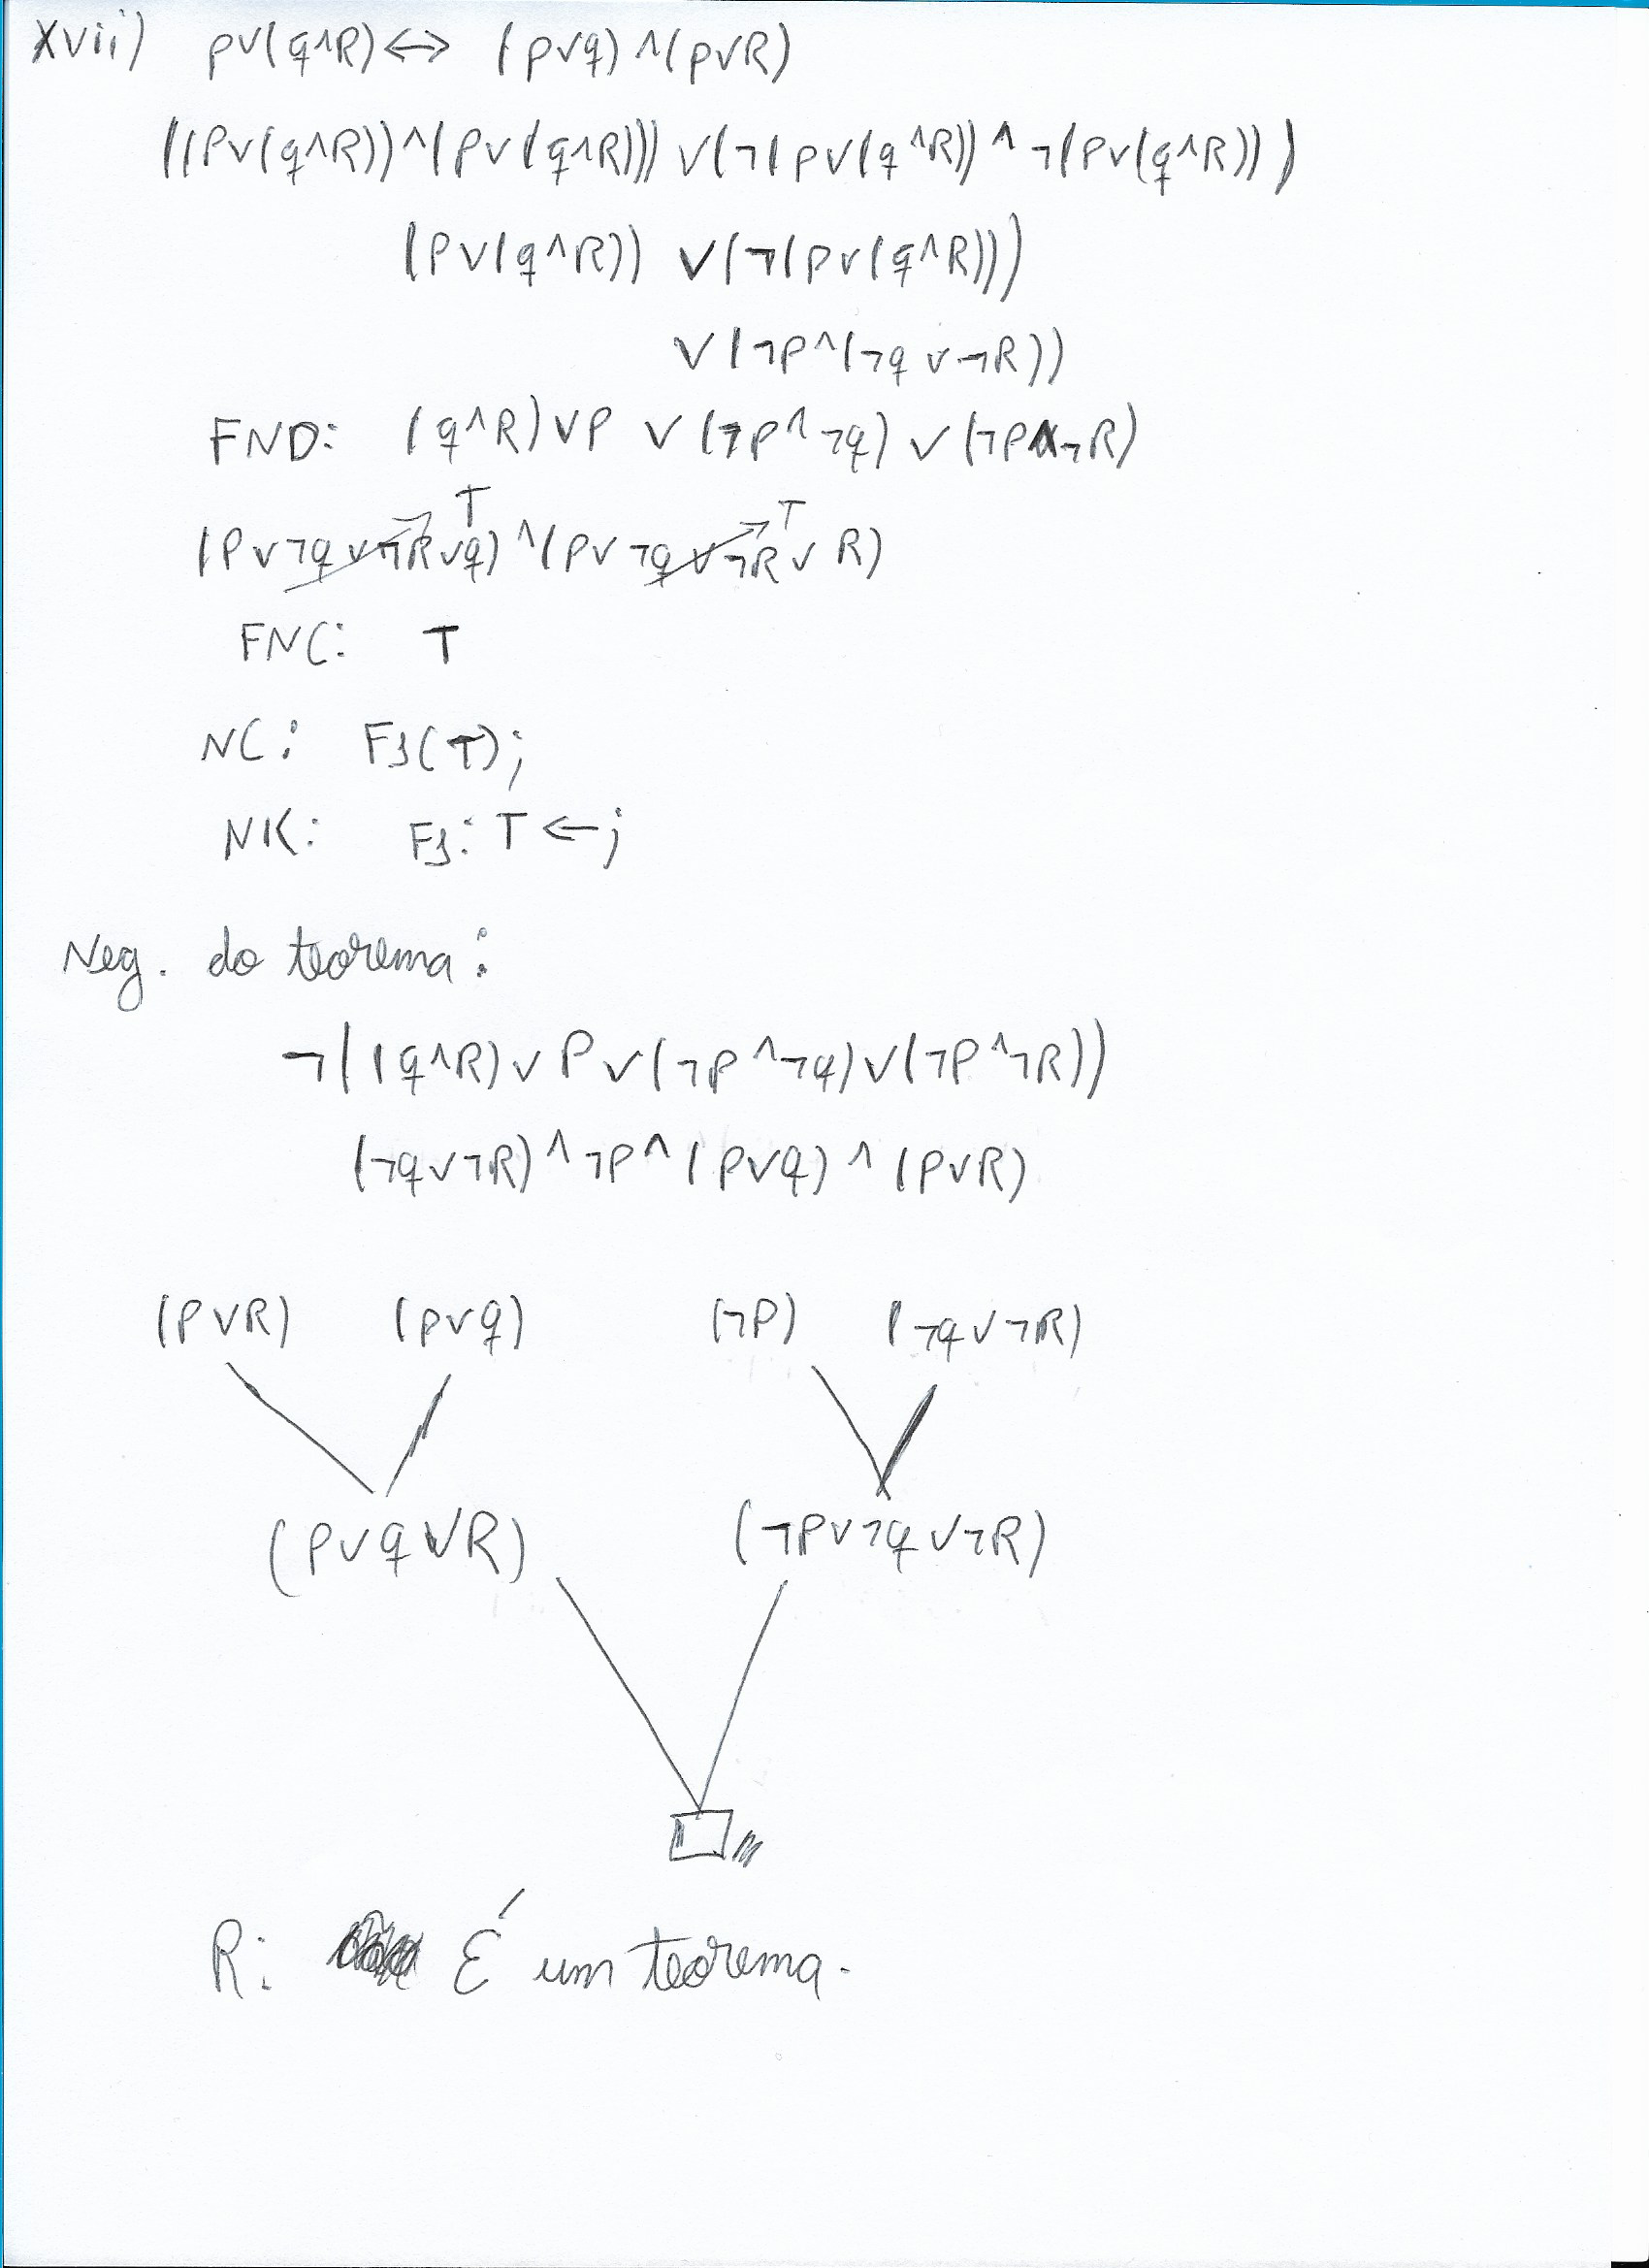 xvii) p∨(q∧R)↔ (p∨q)∧(p∨R)
((P∨(q∧R))∧(P∨(q∧R))) ∨(¬(p∨(q∧R))∧¬(P∨(q∧R)))
(P∨(q∧R)) ∨(¬(P∨(q∧R)))
∨(¬P∧(¬q∨¬R))
FND: (q∧R)∨P ∨ (¬P∧¬q) ∨ (¬P∧¬R)
T T
(P∨¬q∨¬R∨q)∧(P∨¬q∨¬R∨R)
FNC: T
NC: F1(T);
NK: F1: T←;
Neg. do teorema:
¬((q∧R)∨P∨(¬P∧¬q)∨(¬P∧¬R))
(¬q∨¬R)∧¬P∧(P∨q)∧(P∨R)
(P∨R) (p∨q) (¬P) (¬q∨¬R)
(P∨q∨R) (¬P∨¬q∨¬R)
R: É um teorema.